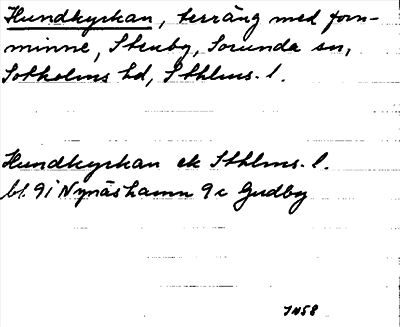 Hundkyrkan, terräng med forn-
minne, Stenby, Sorunda sn,
Sotholms hd, Sthlms. l.
Hundkyrkan ek Sthlms. l.
bl. 9i Nynäshamn 9c Gudby